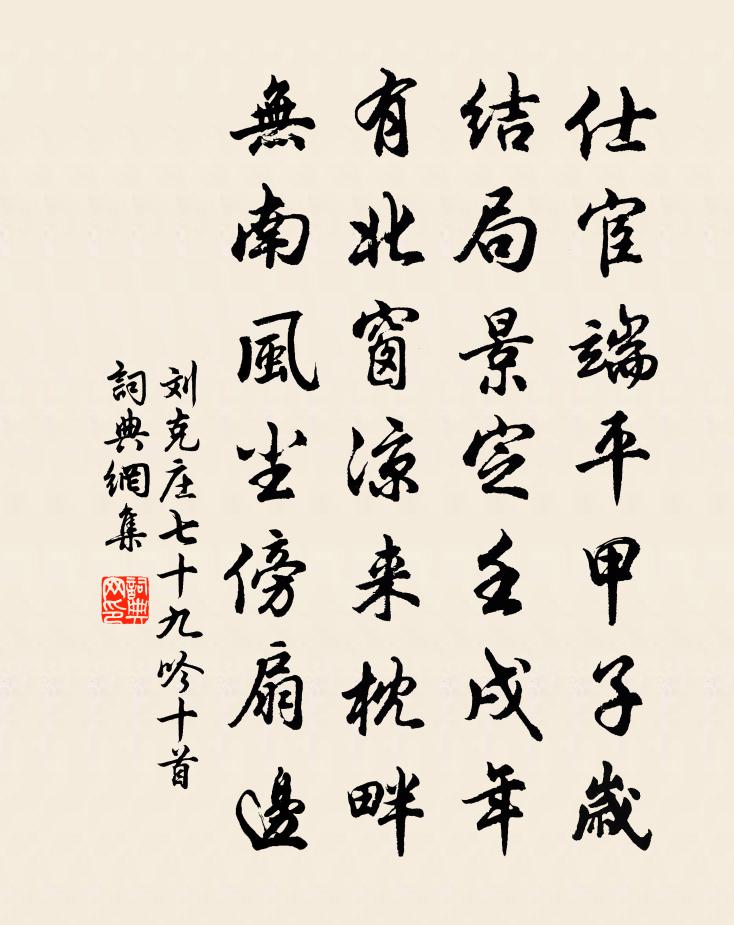 仕宦端平甲子歲
結局景定壬戌年
有北窗涼来枕畔
無南風尘傍扇邊
刘克庄七十九吟十首
詞典網集
詞典网印